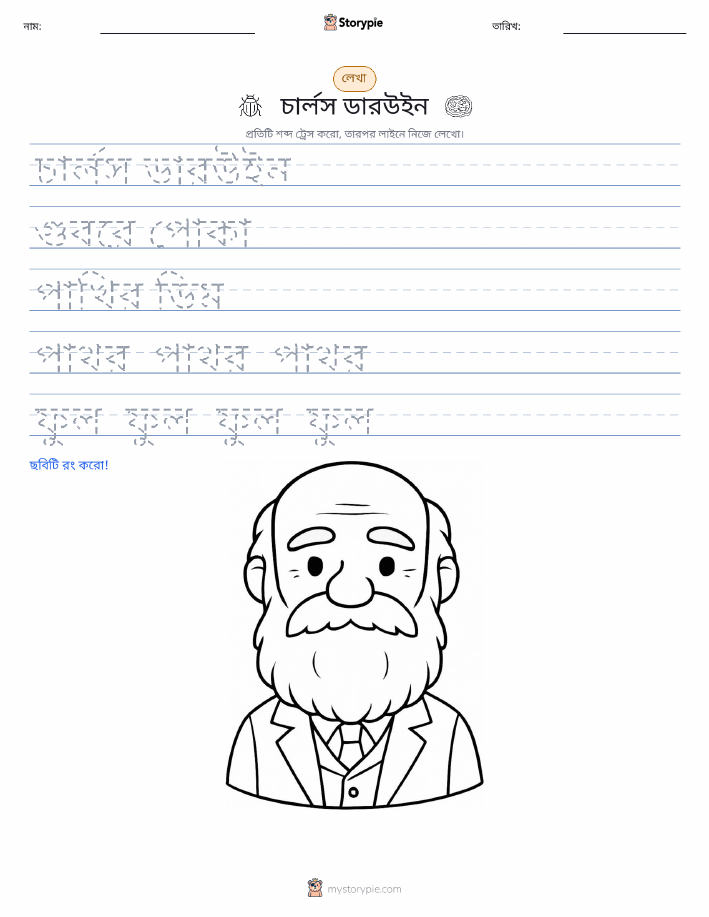 নাম:
Storypie
তারিখ:
লেখা
চার্লস ডারউইন
প্রতিটি শব্দ ট্রেস করো, তারপর লাইনে নিজে লেখো।
চার্লস ডারউইন
গুবরে পোকা
পাখির ডিম
পাথর পাথর পাথর
ফুল ফুল ফুল ফুল
ছবিটি রং করো!
mystorypie.com